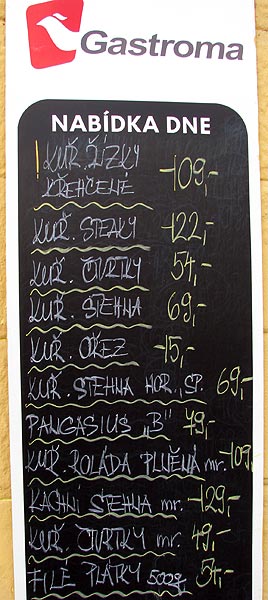 Gastroma
NABÍDKA DNE
! KUŘ. ŽÍZKY
KŘEHČENÉ -109,-
KUŘ. STEAKY -122,-
KUŘ. ČTVRTKY 54,-
KUŘ. STEHNA 69,-
KUŘ. OŘEZ -15,-
KUŘ. STEHNA HOR., SP. 69,-
PANGASIUS „B" 79,-
KUŘ. ROLÁDA PLNĚNÁ mr. 109,-
KACHNÍ STEHNA mr. -129,-
KUŘ. ČTVRTKY mr. 49,-
FILÉ PLÁTKY 500g 54,-